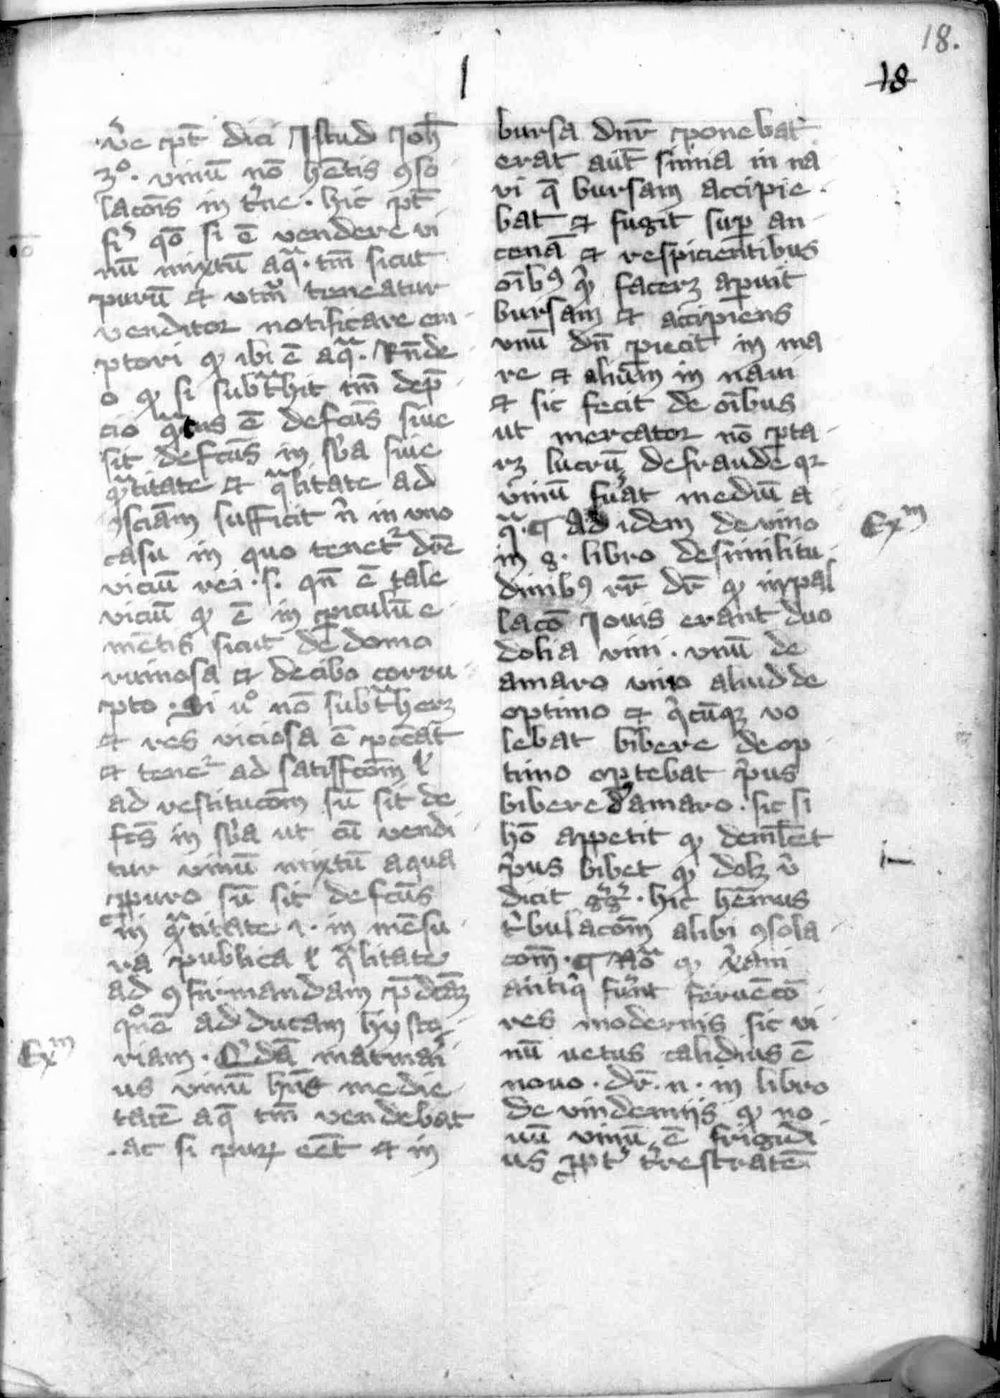 18.
18
v̾e pt̄ dici Istud Ioh̄
3o. vinū nō hn̄tis ꝯso
lacōis in t̾ne. hic pt̄
fi̾ qō si ē vendere vi
nū mixtū aqᵃ. tm̄ sicut
purū et vtrū teneatur
venditor notificare em
ptori qꝫ ibi ē aqᵃ. Rn̄de
o qꝫ si subtᵃhit tm̄ de p̄
cio qᵃtus ē defcūs siue
sit defcūs in sb̄a siue
qᵃtitate et qᵃlitate ad
ꝯsciam sufficit n̄ in vno
casu in quo tenet̾ dr̄e
viciū rei. s. qn̄ ē tale
viciū qꝫ ē in ꝑiculū e
mētis sicut de domo
ruinosa et de cibo corru
pto. Si vº nō subtᵃherꝫ
et res viciosa ē peccat
et tenet̾ ad satisfcōm l̾
ad restitucōm siū sit de
fcs̄ in sb̄a ut cū vendi
tur vinū mixtū aqua
ꝓ puro siū sit defcūs
in qᵃtitate i. in mēsu
ra publica l̾ qᵃlitate
ad ꝯfirmandam p̄dcāꝫ
qōnē adducam hysto
riam. Qⁱdā matinari
us vinū hn̄s medie
tatē aq̄ tm̄ vendebat
ac si purꝫ eēt et in
Exᵐ
bursa dn̄r ponebat
erat aūt simia in na
vi q̄ bursam accipie
bat et fugit suꝑ an
tenā et respicientibus
oībꝰ qⁱd facerꝫ aperuit
bursam et accipiens
vnū dn̄ piecit in ma
re et alium in naui
et sic fecit de oībus
ut mercator nō porta
rꝫ lucrū de fraude qꝛ
vinū fuᵃt mediū a
qᵃ. ¶ Ad idem de vino
in 8. libro de similitu
dinibꝰ rr̄ dr̄ qꝫ in pal
lacō Iouis erant duo
dolia vini. vnū de
amaro vino aliud de
optimo et qⁱcūqꝫ vo
lebat bibere de op
timo oportebat pⁱus
bibere d̾ amaro. sic si
hō appetit qꝫ
pⁱus bibet qꝫ
dicit g̾g̾. hic hēmus
tⁱbulacōm alibi ꝯsola
cōm. ¶ Nōᵃ qꝫ x̾ani
antiqⁱ fuᵃnt feruēcō
res modernis sic vi
nū vetus calidius ē
nouo. dr̄. n. in libro
de vindemijs qꝫ no
uū vinū ē frigidi
us ꝓpt̾ t̾restratē
Exᵐ